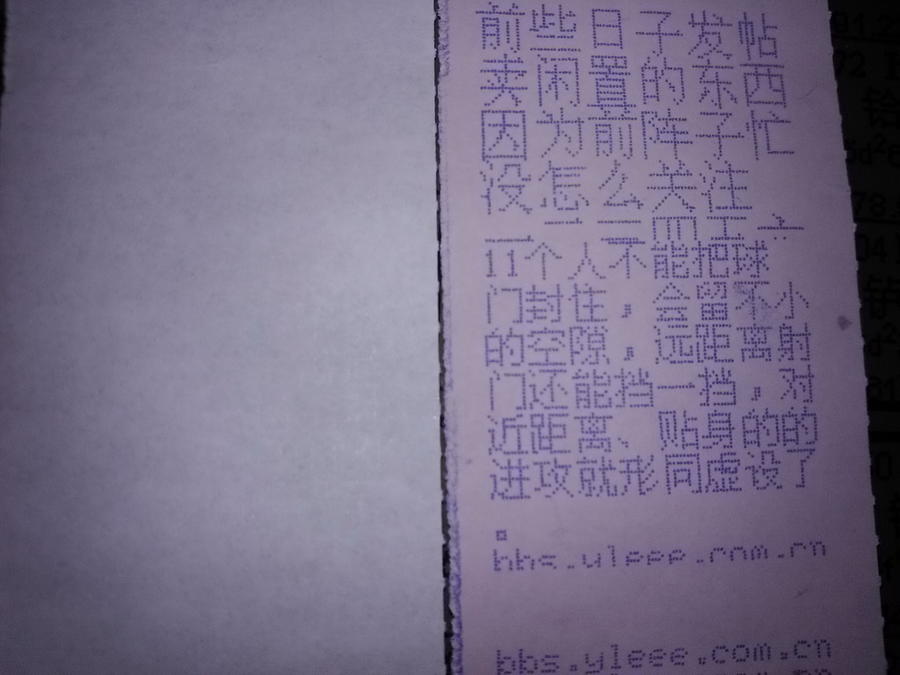 前些日子发帖
卖闲置的东西
因为前阵子忙
没怎么关注
11个人不能把球
门封住，会留不小
的空隙，远距离射
门还能挡一挡，对
近距离、贴身的的
进攻就形同虚设了
。
bbs.yleee.com.cn
bbs.yleee.com.cn